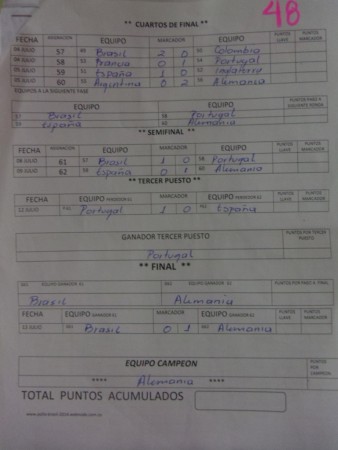 48
** CUARTOS DE FINAL **
FECHA ASIGNACION EQUIPO MARCADOR EQUIPO PUNTOS LLAVE PUNTOS MARCADOR
04 JULIO 57 Brasil 2 0 Colombia
04 JULIO 58 Francia 0 1 Portugal
05 JULIO 59 España 1 0 Inglaterra
05 JULIO 60 Argentina 0 2 Alemania
EQUIPOS A LA SIGUIENTE FASE
EQUIPO EQUIPO
57 Brasil 58 Portugal
59 España 60 Alemania
** SEMIFINAL **
FECHA EQUIPO MARCADOR EQUIPO PUNTOS LLAVE PUNTOS MARCADOR
08 JULIO 61 57 Brasil 1 0 58 Portugal
09 JULIO 62 59 España 0 1 60 Alemania
** TERCER PUESTO **
FECHA EQUIPO MARCADOR EQUIPO PUNTOS LLAVE PUNTOS MARCADOR
12 JULIO Portugal 1 0 España
GANADOR TERCER PUESTO PUNTOS POR TERCER PUESTO
Portugal
** FINAL **
EQUIPO GANADOR 61 EQUIPO GANADOR
Brasil Alemania
FECHA EQUIPO MARCADOR EQUIPO PUNTOS LLAVE PUNTOS MARCADOR
Brasil 0 1 Alemania
EQUIPO CAMPEON PUNTOS POR CAMPEON
**** Alemania ****
TOTAL PUNTOS ACUMULADOS